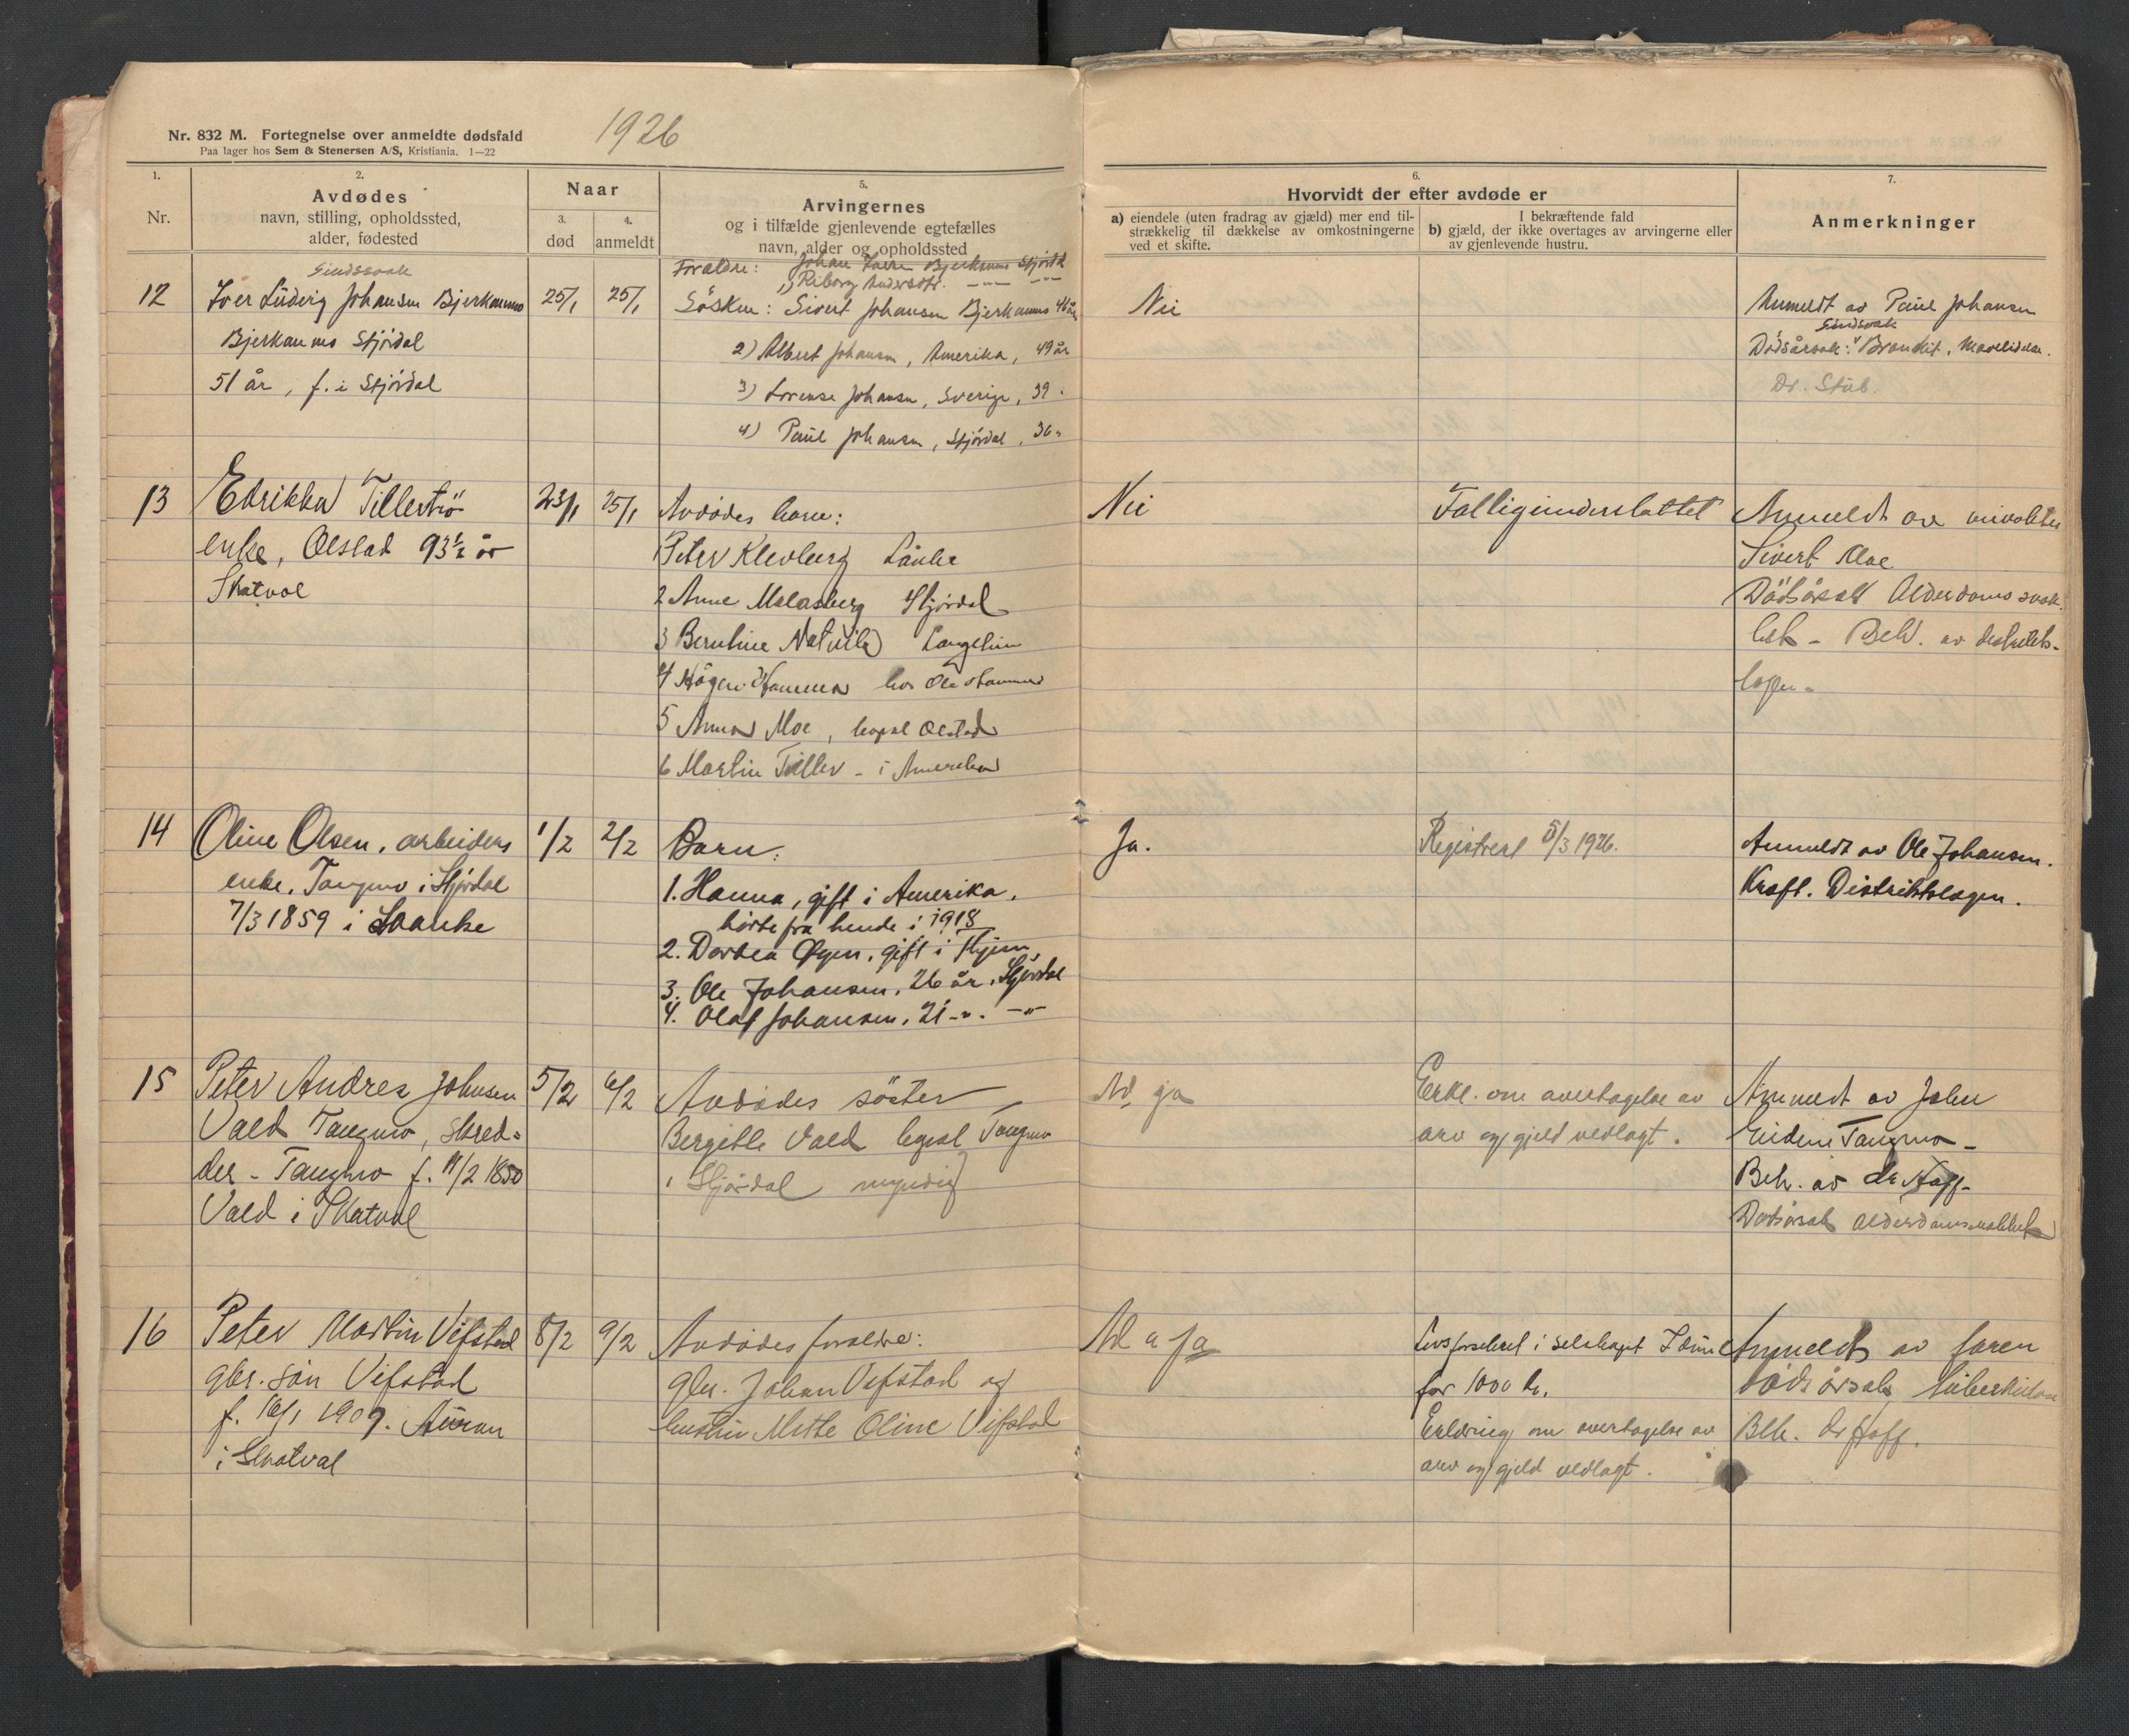 Nr. 832 M. Fortegnelse over anmeldte dødsfald
Paa lager hos Sem & Stenersen A/S, Kristiania. 1—22
1926
1.
Nr.
2.
Avdødes
navn, stilling, opholdssted,
alder, fødested
Naar
3.
død
4.
anmeldt
5.
Arvingernes
og i tilfælde gjenlevende egtefælles
navn, alder og opholdssted
6.
Hvorvidt der efter avdøde er
a) eiendele (uten fradrag av gjæld) mer end til-
strækkelig til dækkelse av omkostningerne
ved et skifte.
I bekræftende fald
b) gjæld, der ikke overtages av arvingerne eller
av gjenlevende hustru.
7.
Anmerkninger
12
Sindssvak
Iver Ludvig Johansen Bjerkanmo
Bjerkanmo Stjördal
51 år, f. i Stjördal
25/1
25/1
Forældre: Johan Bjerkanmo Stjördal
Andersdtr.
Sösken: Sivert Johansen Bjerkanmo 46 år
2) Albert Johansen, Amerika, 49 år
3) Lorense Johansen, Sverige, 39 "
4) Paul Johansen, Stjördal, 36 "
Nei
Anmeldt av Paul Johansen
Sindsvak
Dödsårsak: Bronkit, Mavelidelse.
Dr. Stub.
13
Edrikka Tillertrö
enke, Ølstad 93½ år
Skatval
23/1
25/1
Avdødes barn:
1 Peter Klevberg Lånke
2 Anne Stjördal
3 Berntine
4 Hammer hos Ole Hammer
5 Anna Moe, bopæl Ølstad
6 Martin Tiller - i Amerika
Nei
Fattigunderstøttet
Anmeldt av
Sivert Moe
Dödsårsak Alderdomssvak-
het - Beh. av distrikts-
lægen.
14
Oline Olsen, arbeiders
enke, Tangmo i Stjördal
7/3 1859 i Laanke
1/2
2/2
Barn:
1. Hanna, gift i Amerika,
hörte fra hende i 1918
2. Dorthea Øyen, gift i
3. Ole Johansen, 26 år, Stjördal
4. Olaf Johansen, 21 - " - — " —
Ja.
Registrert 5/3 1926.
Anmeldt av Ole Johansen.
Kræft. Distriktslægen.
15
Peter Andrea Johnsen
Vald Tangmo, skred-
der - Tangmo f. 11/2 1850
Vald i Skatval
5/2
6/2
Avdødes söster
Bergitte Vald bopæl Tangmo
i Stjördal myndig
Ad ja
Erkl. om overtagelse av
arv og gjeld vedlagt.
Anmeldt av John
Tangmo -
Beh. av dr Hoff -
Dödsårsak Alderdomssvakhet
16
Peter Martin Vifstad
gbr. sön Vifstad
f. 16/1 1909. Auran
i Skatval
8/2
9/2
Avdødes forældre:
gbr. Johan Vifstad og
hustru Mette Oline Vifstad
Ad a Ja
Livsforsikret i selskapet Idun
for 1000 kr.
Erklæring om overtagelse av
arv og gjeld vedlagt.
Anmeldt av faren
Dödsårsak tuberkulose
Beh. dr Hoff.